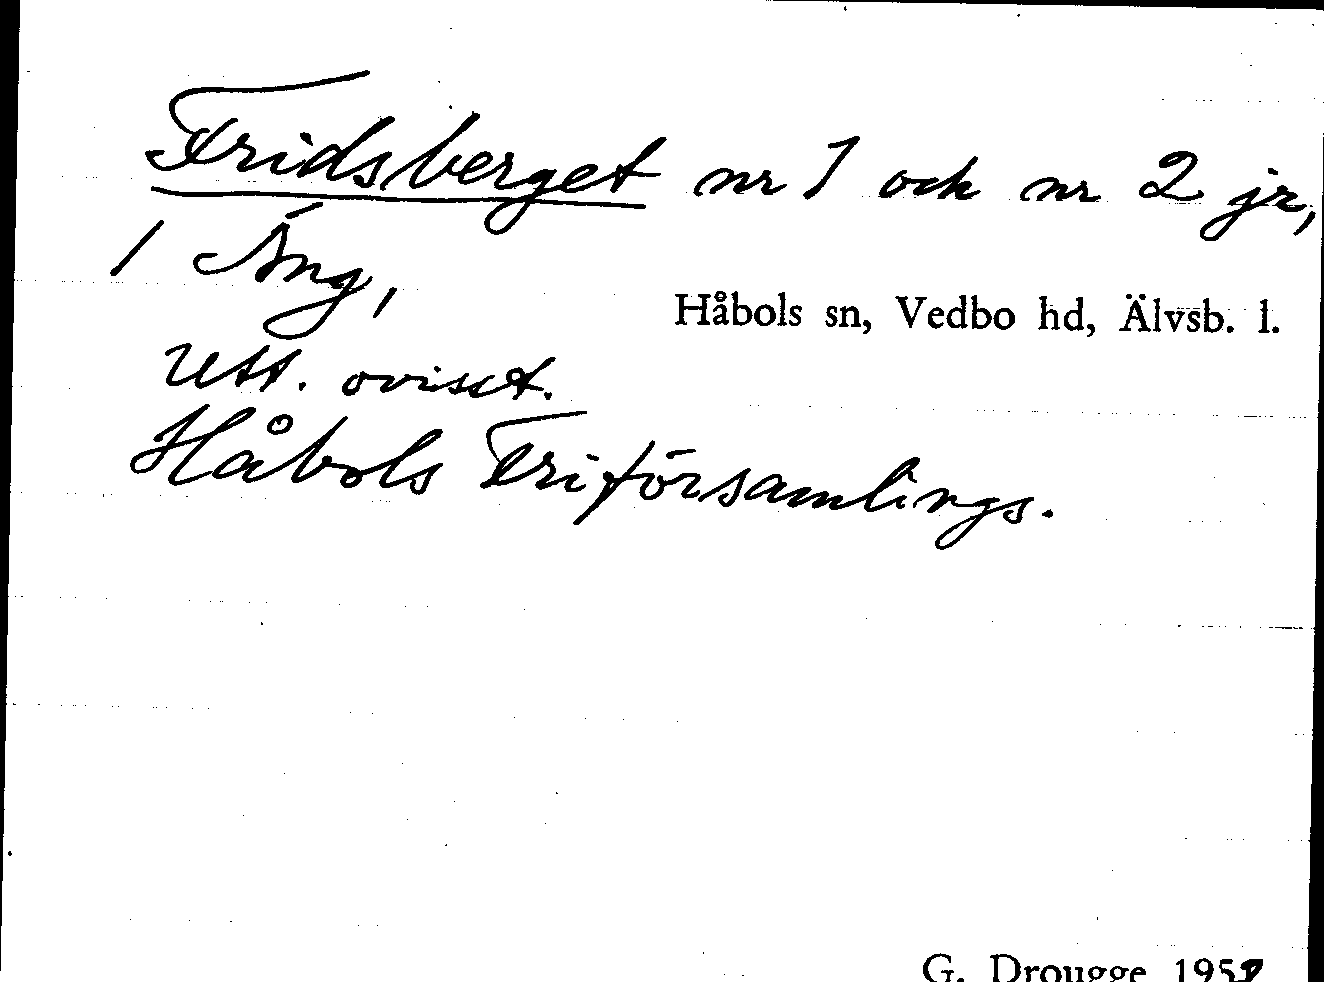 Fridsberget nr 1 och nr 2 jr,
/ Äng,
Håbols sn, Vedbo hd, Älvsb. l.
Utt. ovisst.
Håbols Friförsamlings.
G. Drougge 195